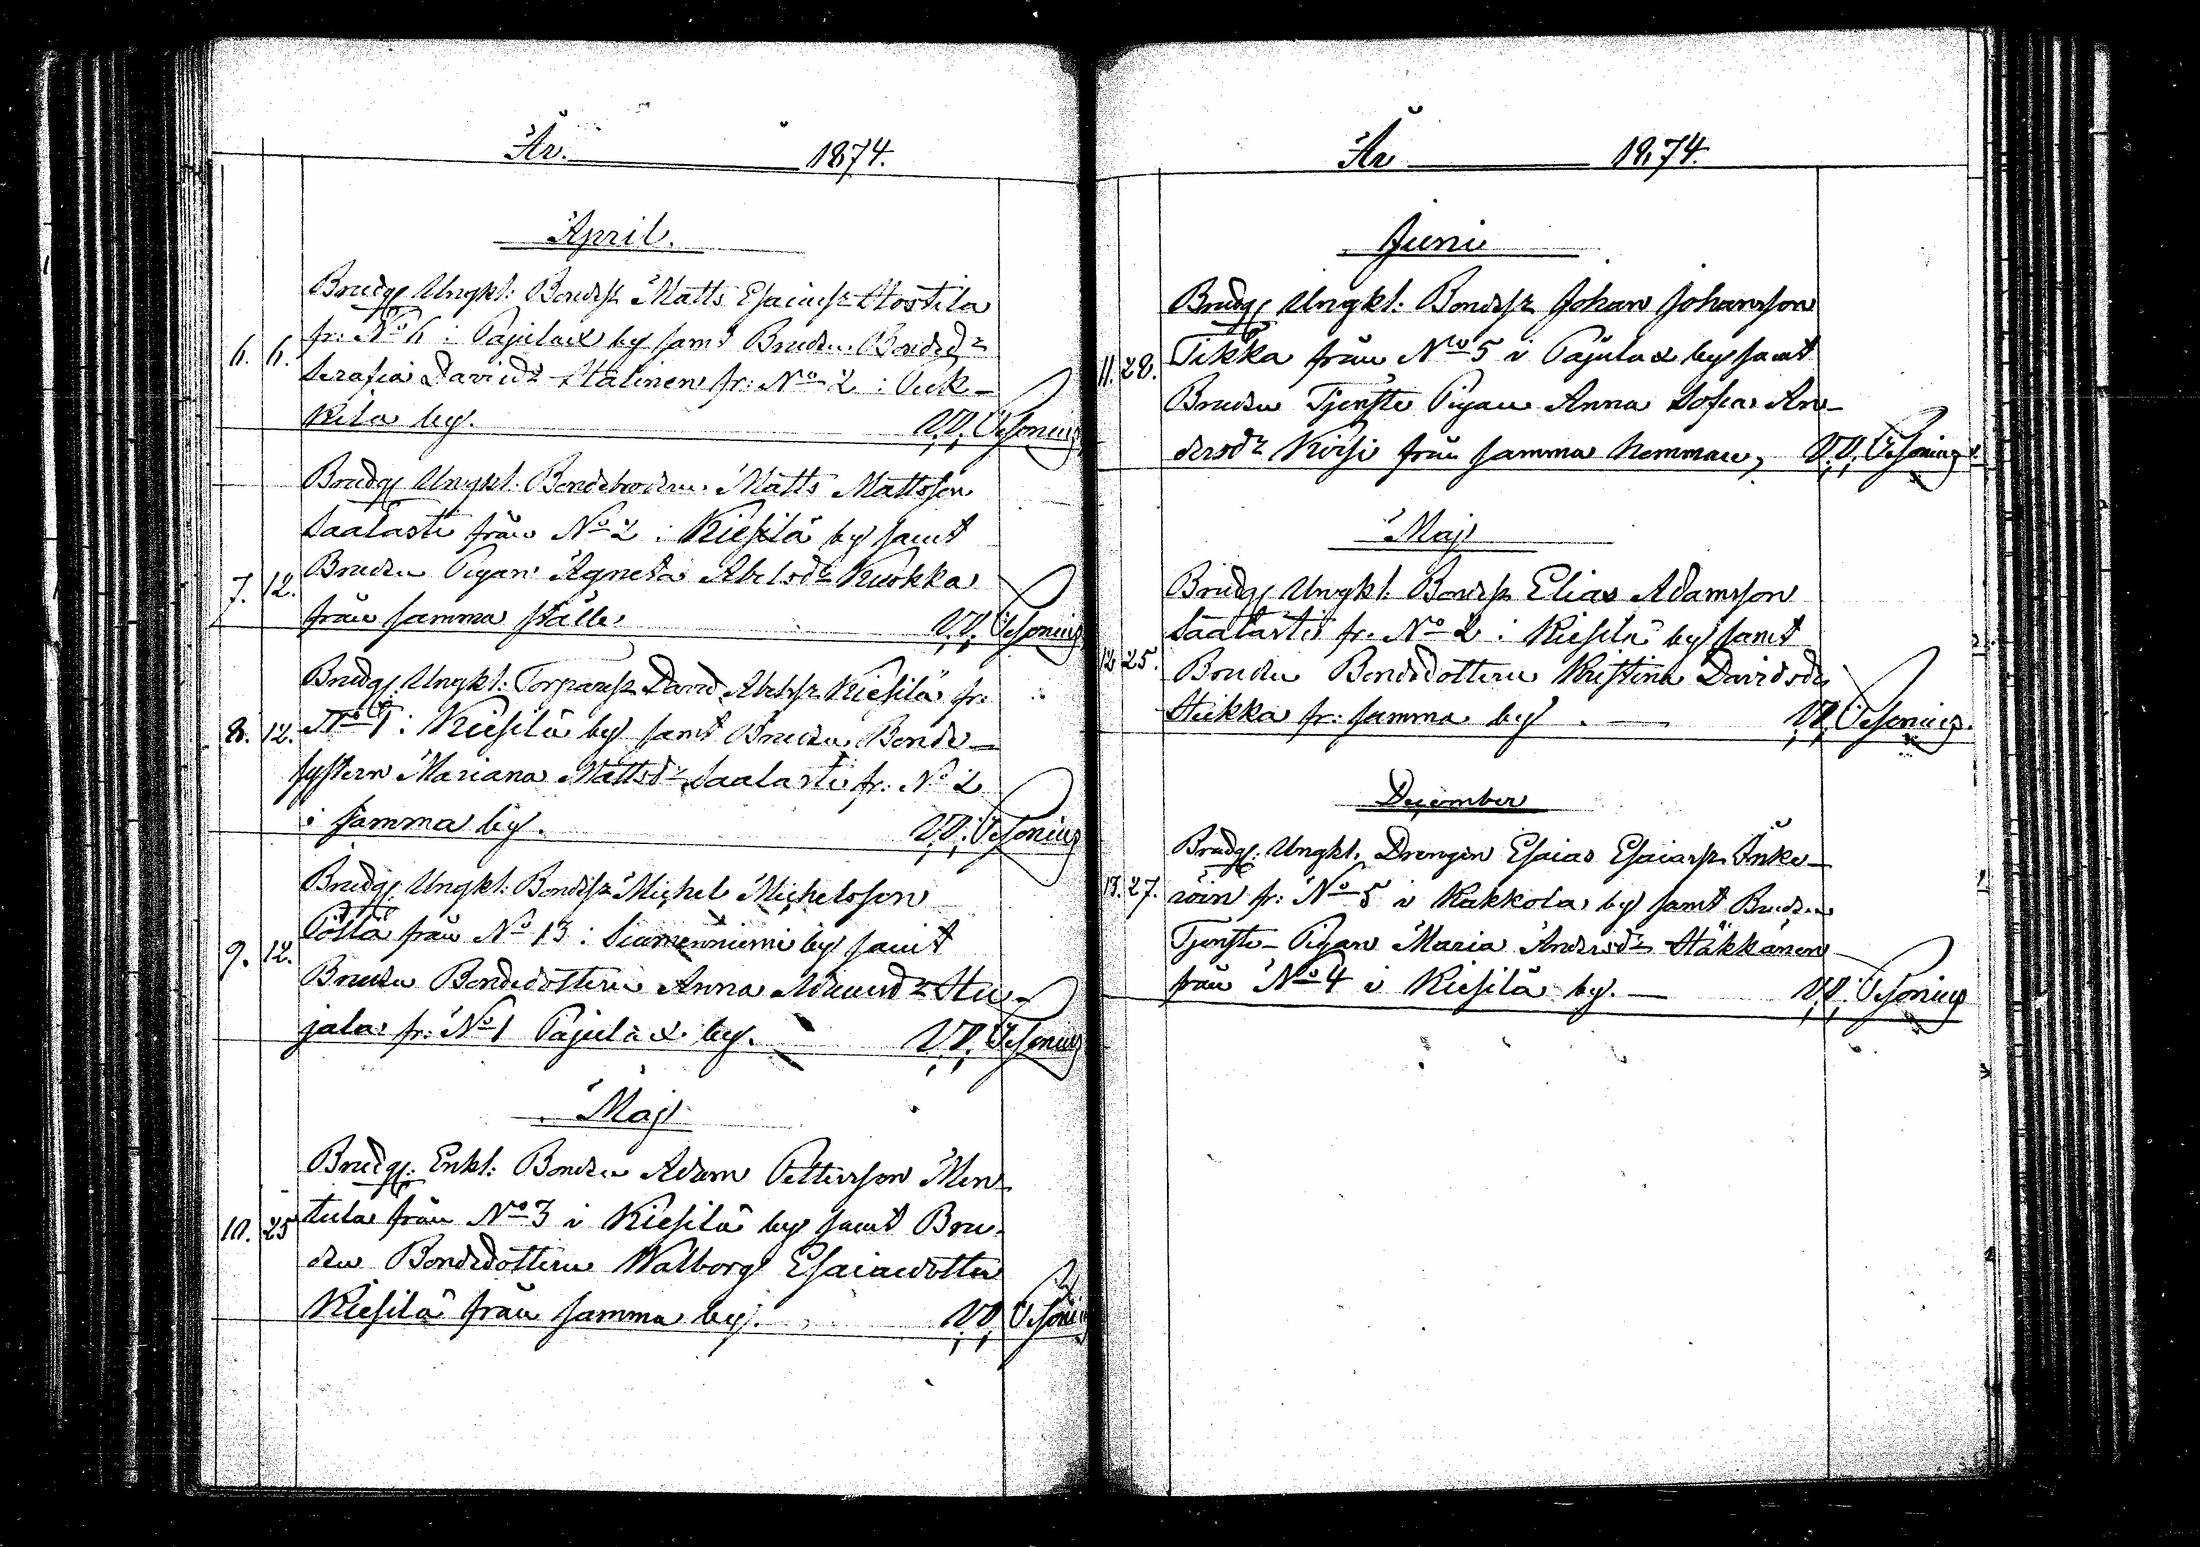 År. 1874.
April.
Brudg. Ungkl: Bondes. Matts Esaiass. Hostila
fr: No 6 i Pajulax by samt Bruden Bondedr
6. 6.
Serafia Davidsdr Halinen fr: No 2 i
kila by. V.V. Vesonius
Brudg. Ungkl. Bondebrodern Matts Mattsson
Saalasti från No 2 i Kiesilä by samt
7. 12.
Bruden Pigan Agneta Abelsdr Kuokka
från samma ställe V.V. Vesonius
Brudg. Ungkl: Torpares. David Abels. Kiesilä fr:
8. 12. No 1 i Kiesilä by samt Bruden Bonde-
systern Mariana Mattsdr Saalasti fr. No 2
i samma by. V.V. Vesonius
Brudg. Ungkl: Bondes. Michel Michelsson
Pöllä från No 13 i Suomenniemi by samt
9. 12.
Bruden Bondedottern Anna Hu-
jala fr: No 1 Pajulax by. V.V. Vesonius
Maj
Brudg. Enkl: Bonden Adam Pettersson Men-
10. 25 tula från No 3 i Kiesilä by samt Bru-
den Bondedottern Walborg Esaiasdotter
Kiesilä från samma by. V.V. Vesonius
År 1874.
Juni
Brudg. Ungkl: Bondes. Johan Johansson
Tikka från No 5 i Pajulax by samt
11. 28.
Bruden Tjenste Pigan Anna Sofia An-
dersdr Kirsi från samma hemman, V.V. Vesonius
Maj
Brudg. Ungkl: Bondes. Elias Adamsson
Saalasti fr. No 2 i Kiesilä by samt
12 25.
Bruden Bondedottern Kristina Davidsdr
Hukka fr: samma by V.V. Vesonius.
December
Brudg. Ungkl. Drengen Esaias Esaiass. Inke-
13. 27. röin fr: No 5 i Kakkola by samt Bruden
Tjenste-Pigan Maria Andersdr Häkkänen
från No 4 i Kiesilä by. V.V. Vesonius